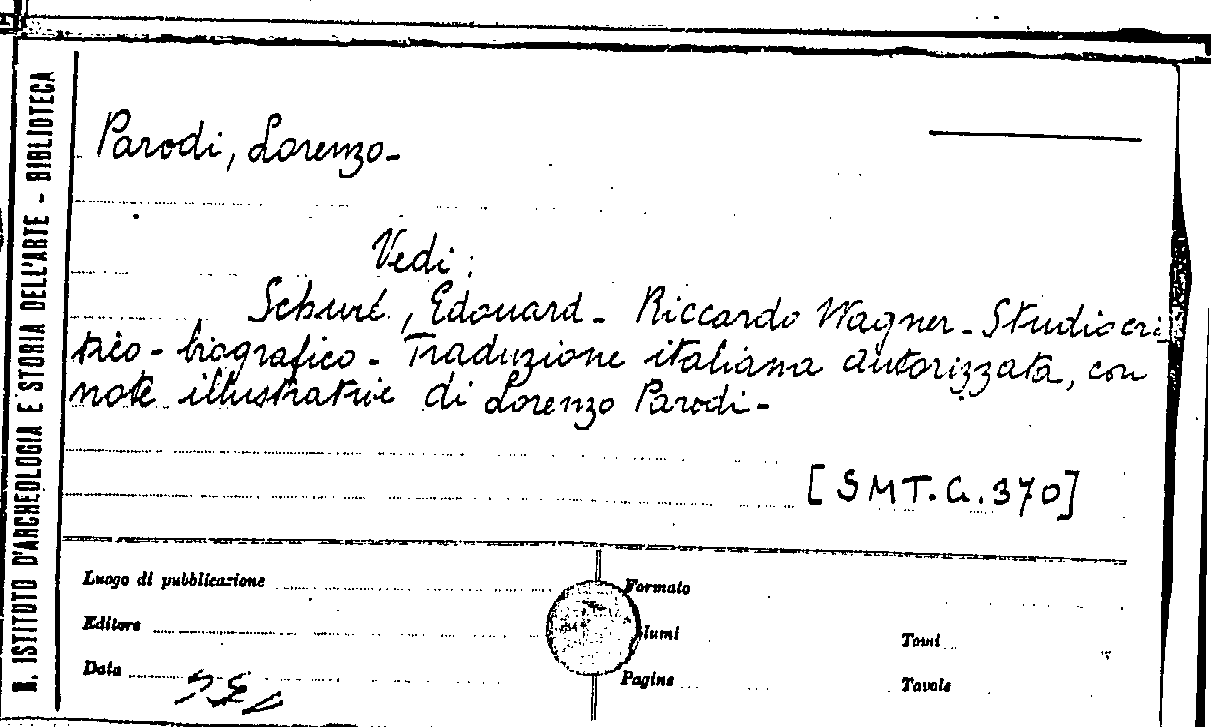 R. ISTITUTO D'ARCHEOLOGIA E STORIA DELL'ARTE - BIBLIOTECA
Parodi, Lorenzo-
Vedi:
Schuré, Edouard - Riccardo Wagner - Studio cri-
tico - biografico - Traduzione italiana autorizzata, con
note illustrative di Lorenzo Parodi -
[SMT. G. 370]
Luogo di pubblicazione
Formato
Editore
lumi
Tomi
Data
Pagine
Tavole